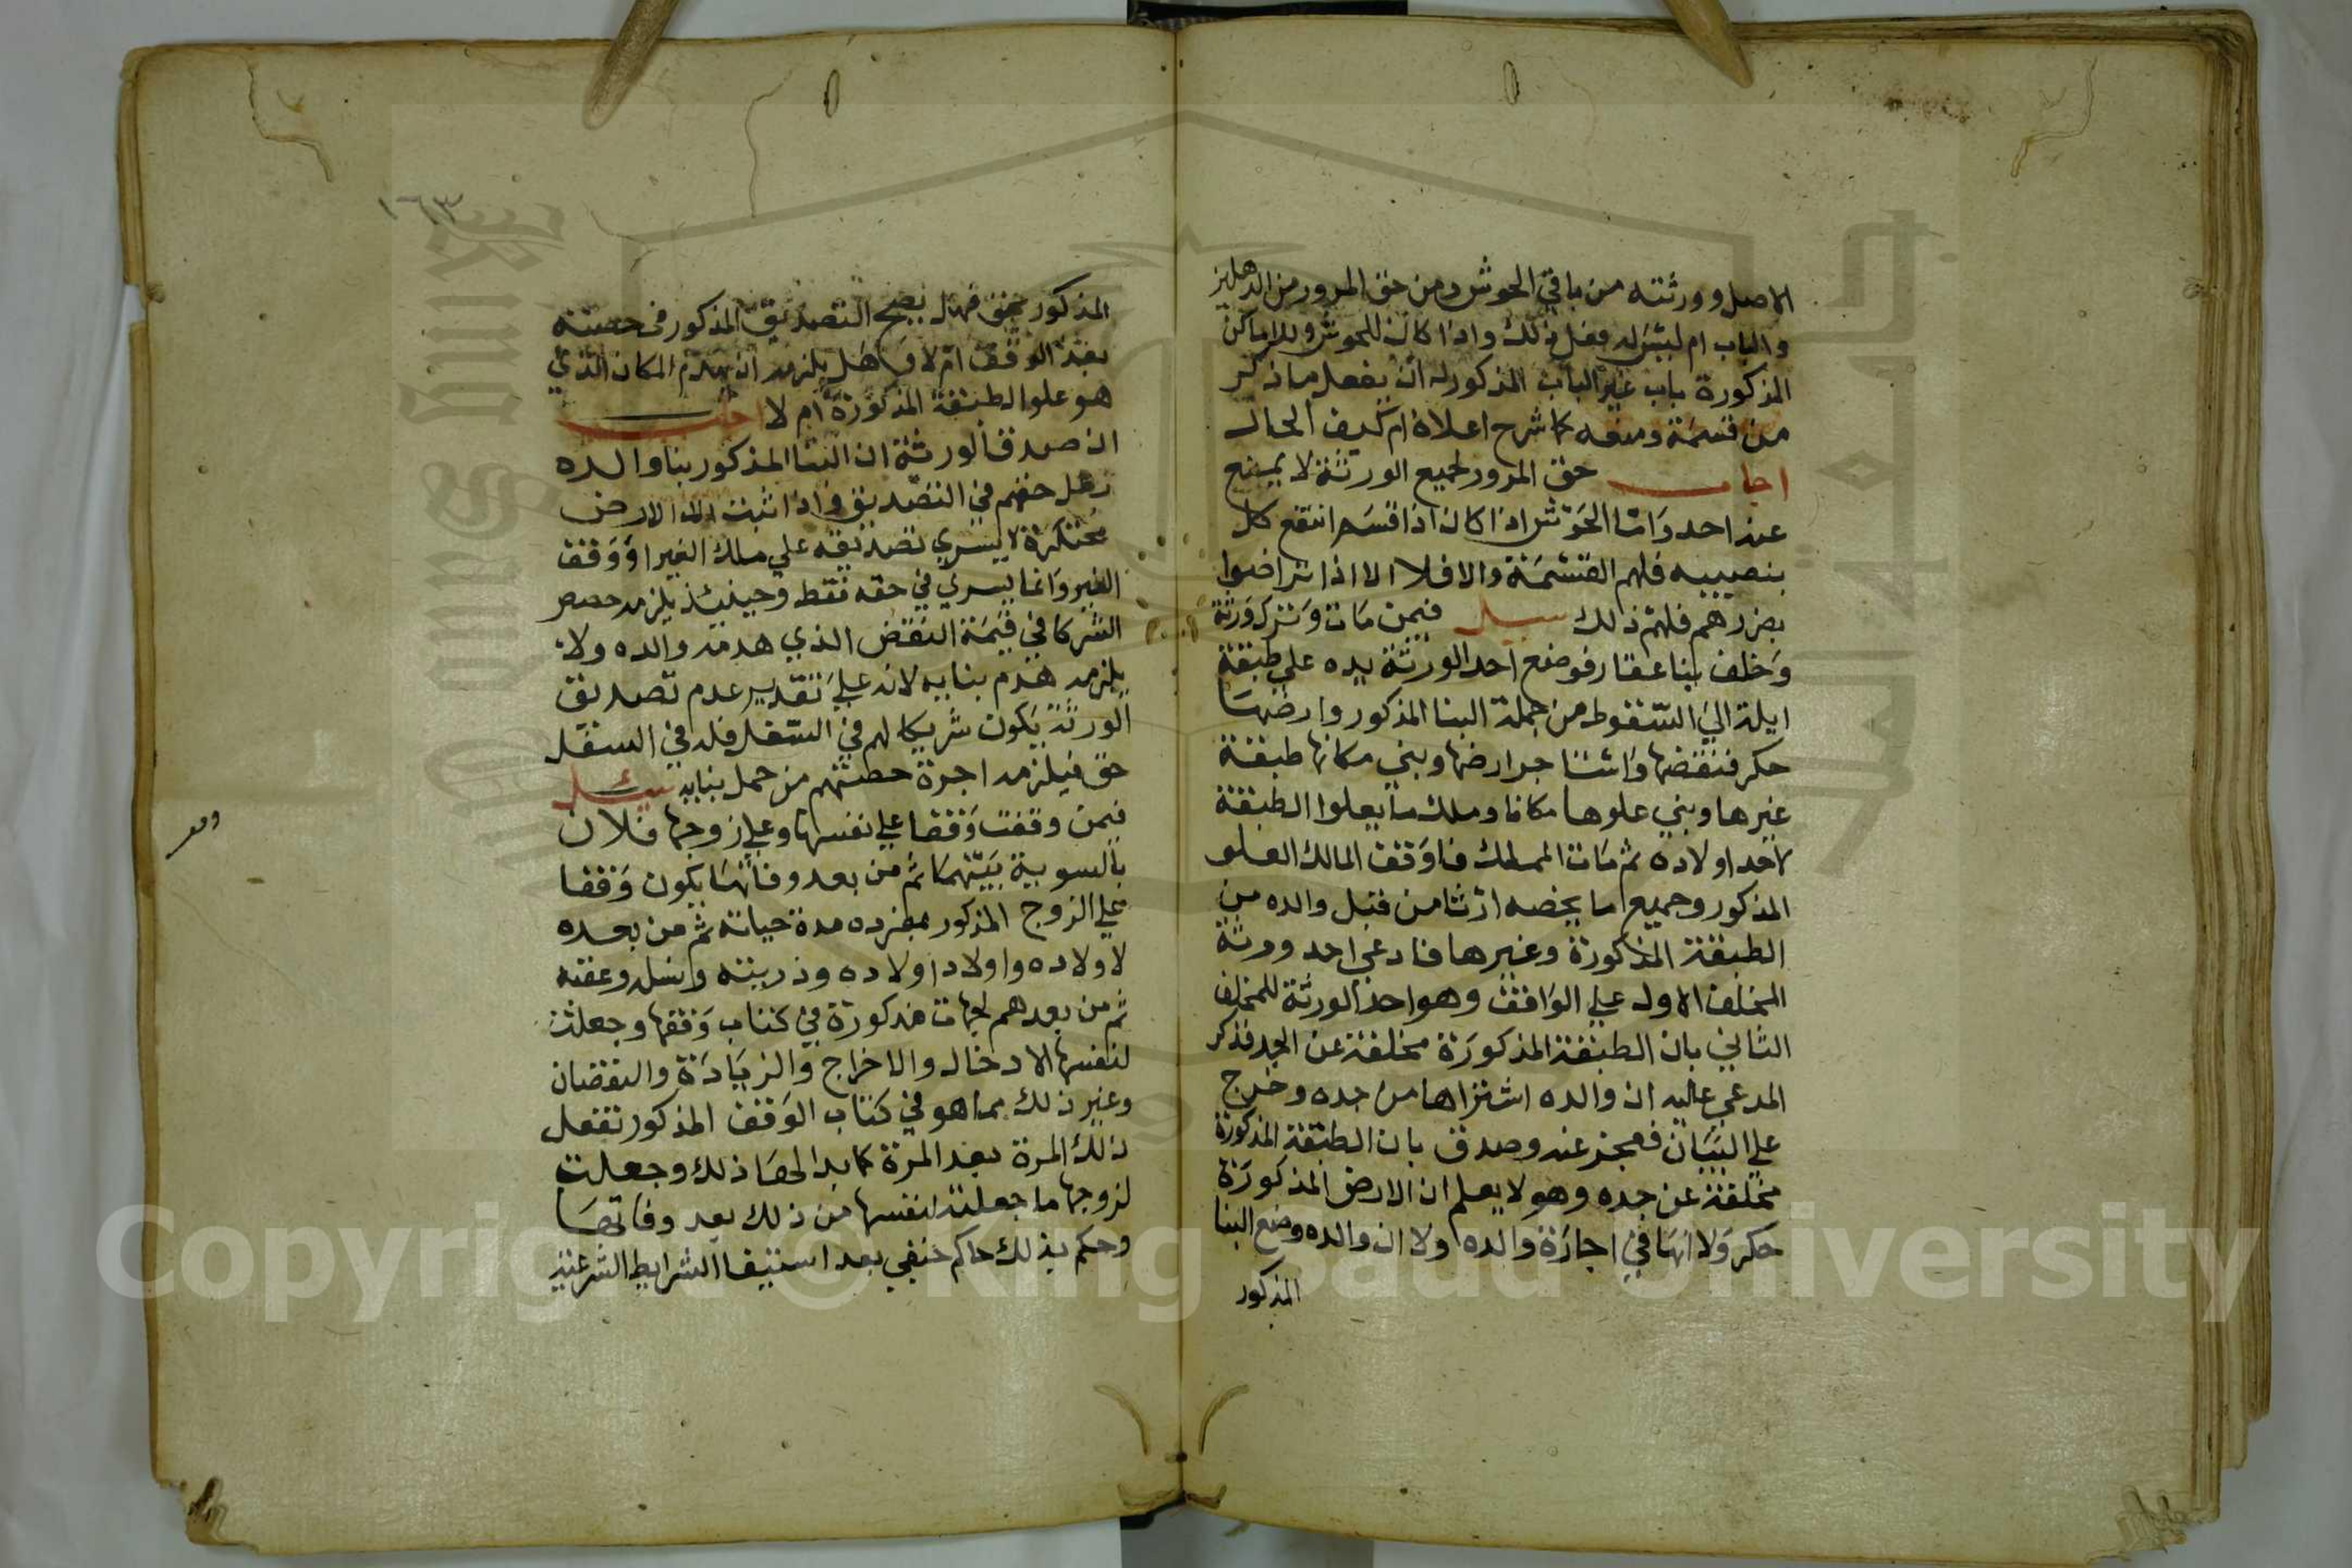 الاصل وورثته من باقي الحوش ومن حق المرور من الدهليز
والباب ام ليس له فعل ذلك واذا كان للحوش وللاماكن
المذكورة باب غير الباب المذكور له ان يفعل ما ذكر
من قسمة ومنعه كما شرح اعلاه ام كيف الحال
اجاب حق المرور لجميع الورثة لا يمنع
عنه احد وامّا الحوش اذا كان اذا قسم انتفع كل
بنصيبه فلهم القسمة والا فلا الا اذا تراضوا
بضررهم فلهم ذلك سيل فيمن مات وترك ورثة
وخلف بنا عقار فوضع احد الورثة يده على طبقة
ايلة الي السقوط من جملة البنا المذكور وارضها
حكر فنقضها واستاجر ارضها وبني مكانها طبقة
غيرها وبني علوها مكانا وملك ما يعلوا الطبقة
لاحد اولاده ثم مات المملك فاوقف المالك العلو
المذكور وجميع ما يخصه ارثا من قبل والده من
الطبقة المذكورة وغيرها فادعي احد ورثة
المخلف الاول علي الواقف وهو احد الورثة للمخلف
الثاني بان الطبقة المذكورة مخلفة عن الجد فذكر
المدعي عليه ان والده اشتراها من جده وخرج
علي البيان فعجز عنه وصدق بان الطبقة المذكورة
مخلفة عن جده وهو لا يعلم ان الارض المذكورة
حكر ولا انها في اجازة والده ولا ان والده وضع البنا
المذكور
١٦٣
المذكور بحق فهل يصح التصديق المذكور في حصته
بعد الوقف ام لا وهل يلزمه ان يهدم المكان الذي
هو علو الطبقة المذكورة ام لا اجاب
ان صدق الورثة ان البنا المذكور بنا والده
حقهم في التصديق واذا ثبت ان الارض
محتكرة لا يسري تصديقه علي ملك الغير او وقف
الغير وانما يسري في حقه فقط وحينئذ يلزمه حصص
الشركا في قيمة النقض الذي هدمه والده ولا
يلزمه هدم بنايه لانه علي تقدير عدم تصديق
الورثة يكون شريكا لهم في السفل فله في السفل
حق فيلزمه اجرة حصتهم من حمل بنايه سيل
فيمن وقفت وقفا علي نفسها وعلي زوجها فلان
بالسوية بينهما ثم من بعد وفاتها يكون وقفا
علي الزوج المذكور بمفرده مدة حياته ثم من بعده
لاولاده واولاد اولاده وذريته ونسله وعقبه
ثم من بعدهم لجهات مذكورة في كتاب وقفها وجعلت
لنفسها الادخال والاخراج والزيادة والنقصان
وغير ذلك مما هو في كتاب الوقف المذكور تفعل
ذلك المرة بعد المرة كما بدا لها ذلك وجعلت
لزوجها ما جعلته لنفسها من ذلك بعد وفاتها
وحكم بذلك حاكم حنفي بعد استيفا الشرايط الشرعية
Copyright © King Saud University